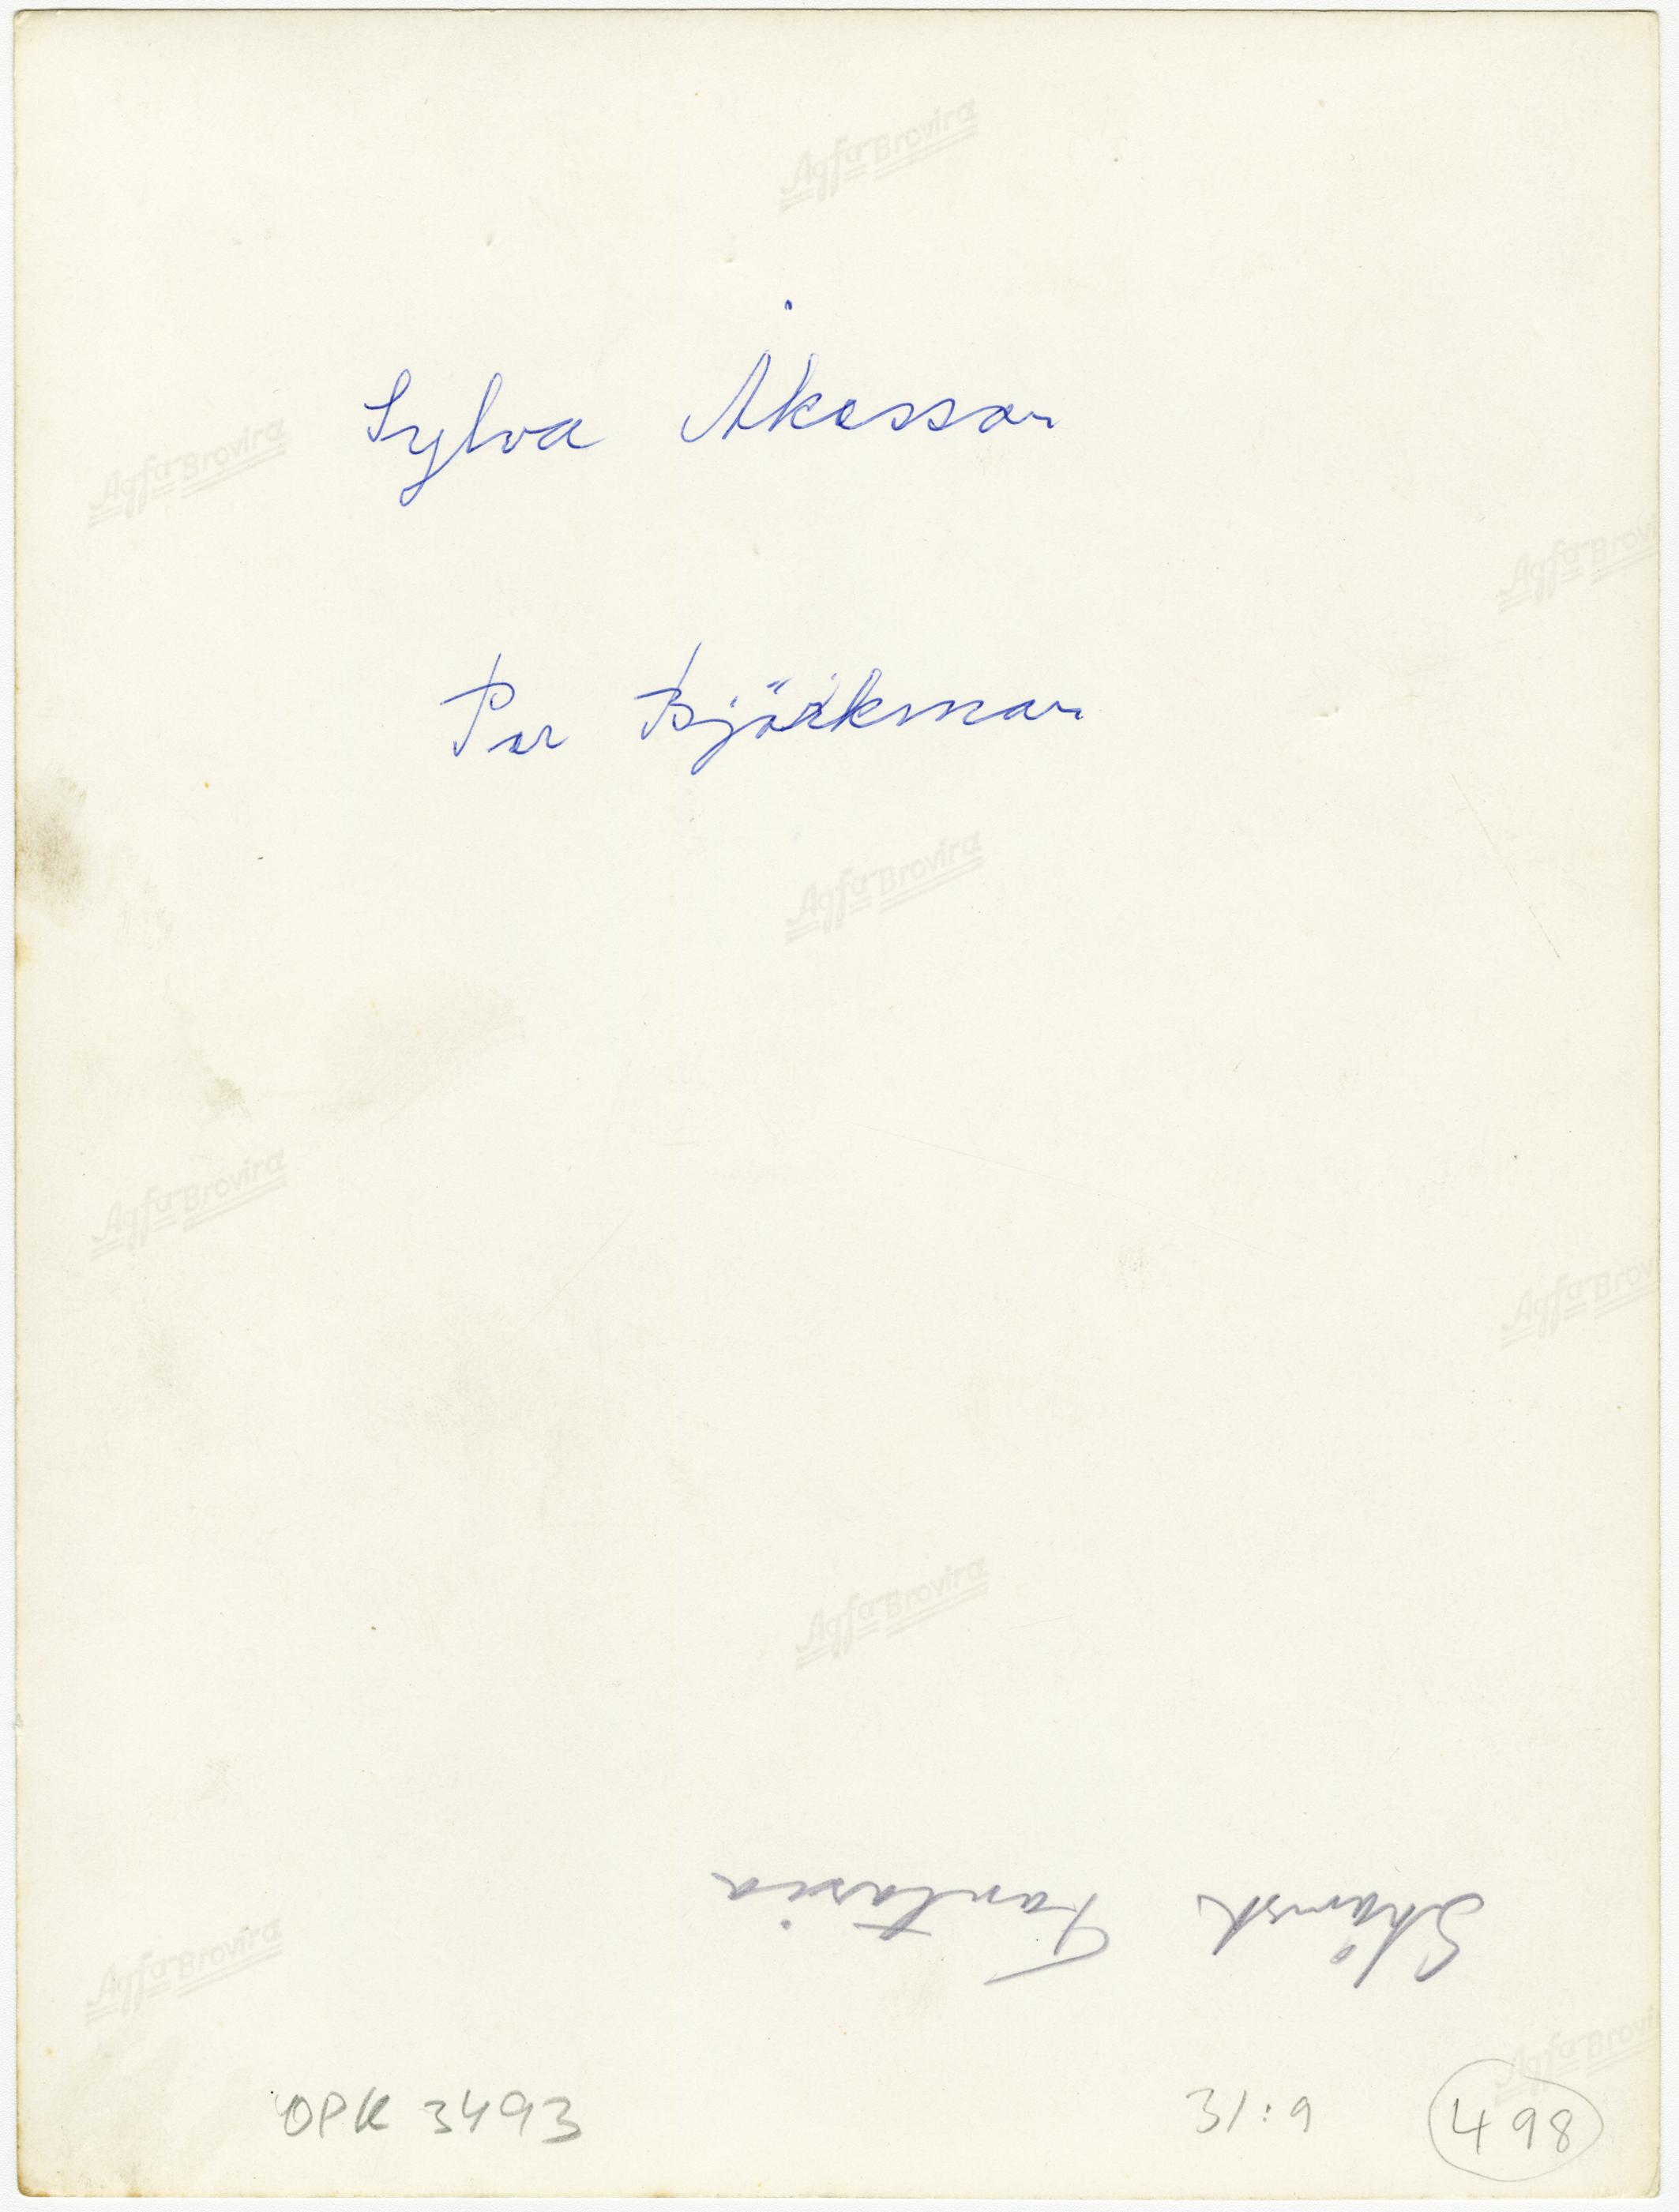 Agfa Brovira
Sylva Åkesson
Agfa Brovira
Agfa Brovi
Per Björkman
Agfa Brovira
Agfa Brovira
Agfa Brov
Agfa Brovira
Skånsk Fantasia
Agfa Brovira
Agfa Brovi
OPK 3493 31:9 498